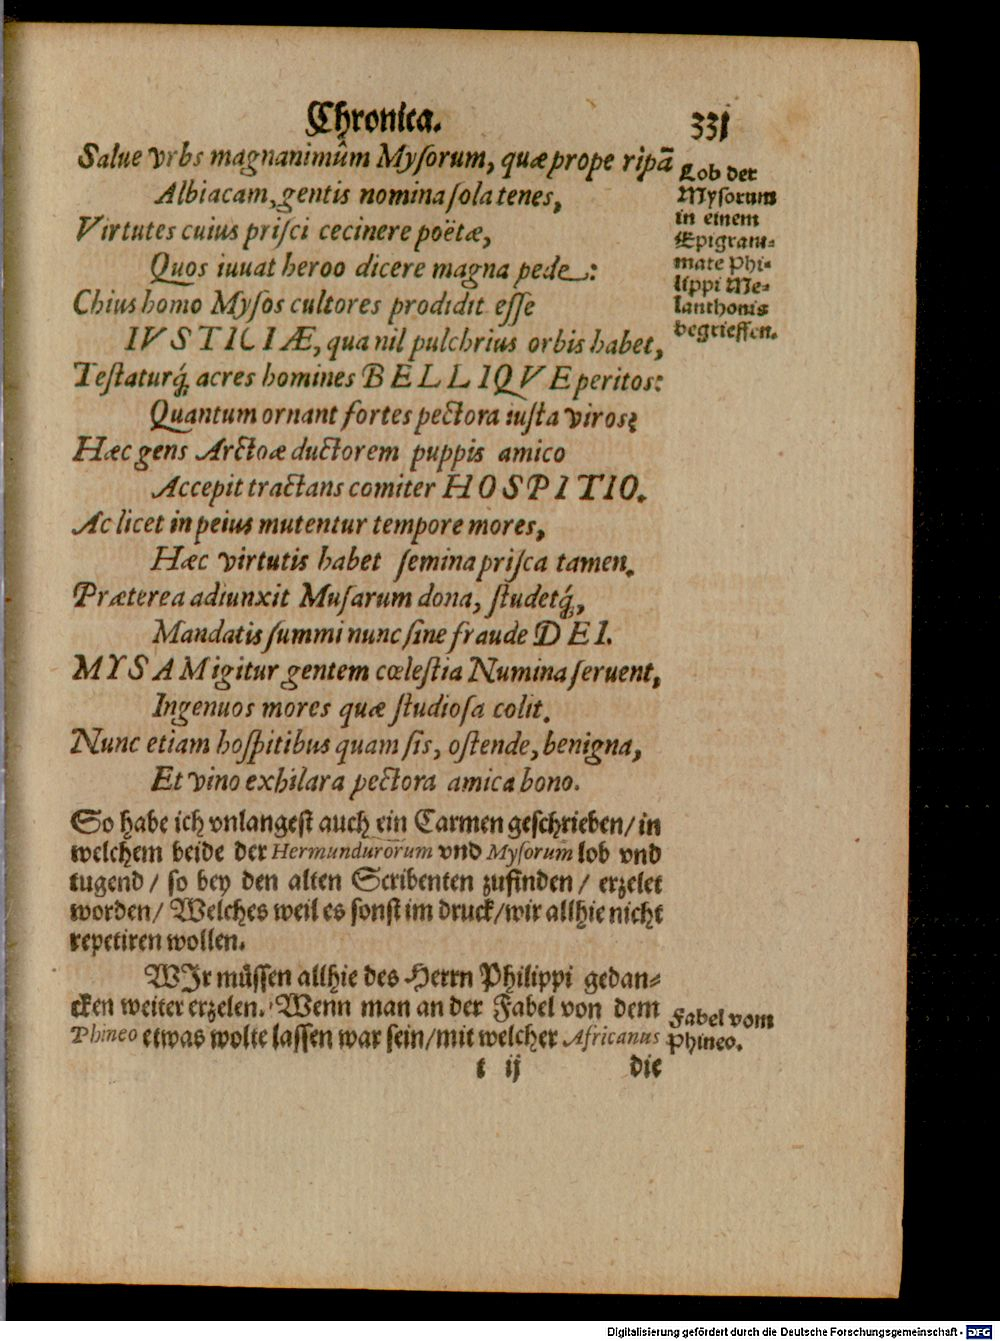 Chronica. 331
Salue vrbs magnanimûm Mysorum, quæ prope ripã
Albiacam, gentis nomina sola tenes,
Virtutes cuius prisci cecinere poëtæ,
Quos iuuat heroo dicere magna pede:
Chius homo Mysos cultores prodidit esse
IVSTICIÆ, qua nil pulchrius orbis habet,
Testaturq́, acres homines BELLIQVE peritos:
Quantum ornant fortes pectora iusta viros?
Hæc gens Arctoæ ductorem puppis amico
Accepit tractans comiter HOSPITIO.
Ac licet in peius mutentur tempore mores,
Hæc virtutis habet semina prisca tamen.
Præterea adiunxit Musarum dona, studetq́,
Mandatis summi nunc sine fraude DEI.
MYSAM igitur gentem cœlestia Numina seruent,
Ingenuos mores quæ studiosa colit.
Nunc etiam hospitibus quam sis, ostende, benigna,
Et vino exhilara pectora amica bono.
Lob der
Mysorum
in einem
Epigram-
mate Phi-
lippi Me-
lanthonis
begrieffen.
So habe ich vnlangest auch ein Carmen geschrieben/ in
welchem beide der Hermundurorum vnd Mysorum lob vnd
tugend / so bey den alten Scribenten zufinden / erzelet
worden/ Welches weil es sonst im druck/ wir allhie nicht
repetiren wollen.
WJr müssen allhie des Herrn Philippi gedan-
cken weiter erzelen. Wenn man an der Fabel von dem
Phineo etwas wolte lassen war sein/ mit welcher Africanus
Fabel vom
Phineo.
t ij die
Digitalisierung gefördert durch die Deutsche Forschungsgemeinschaft - DFG